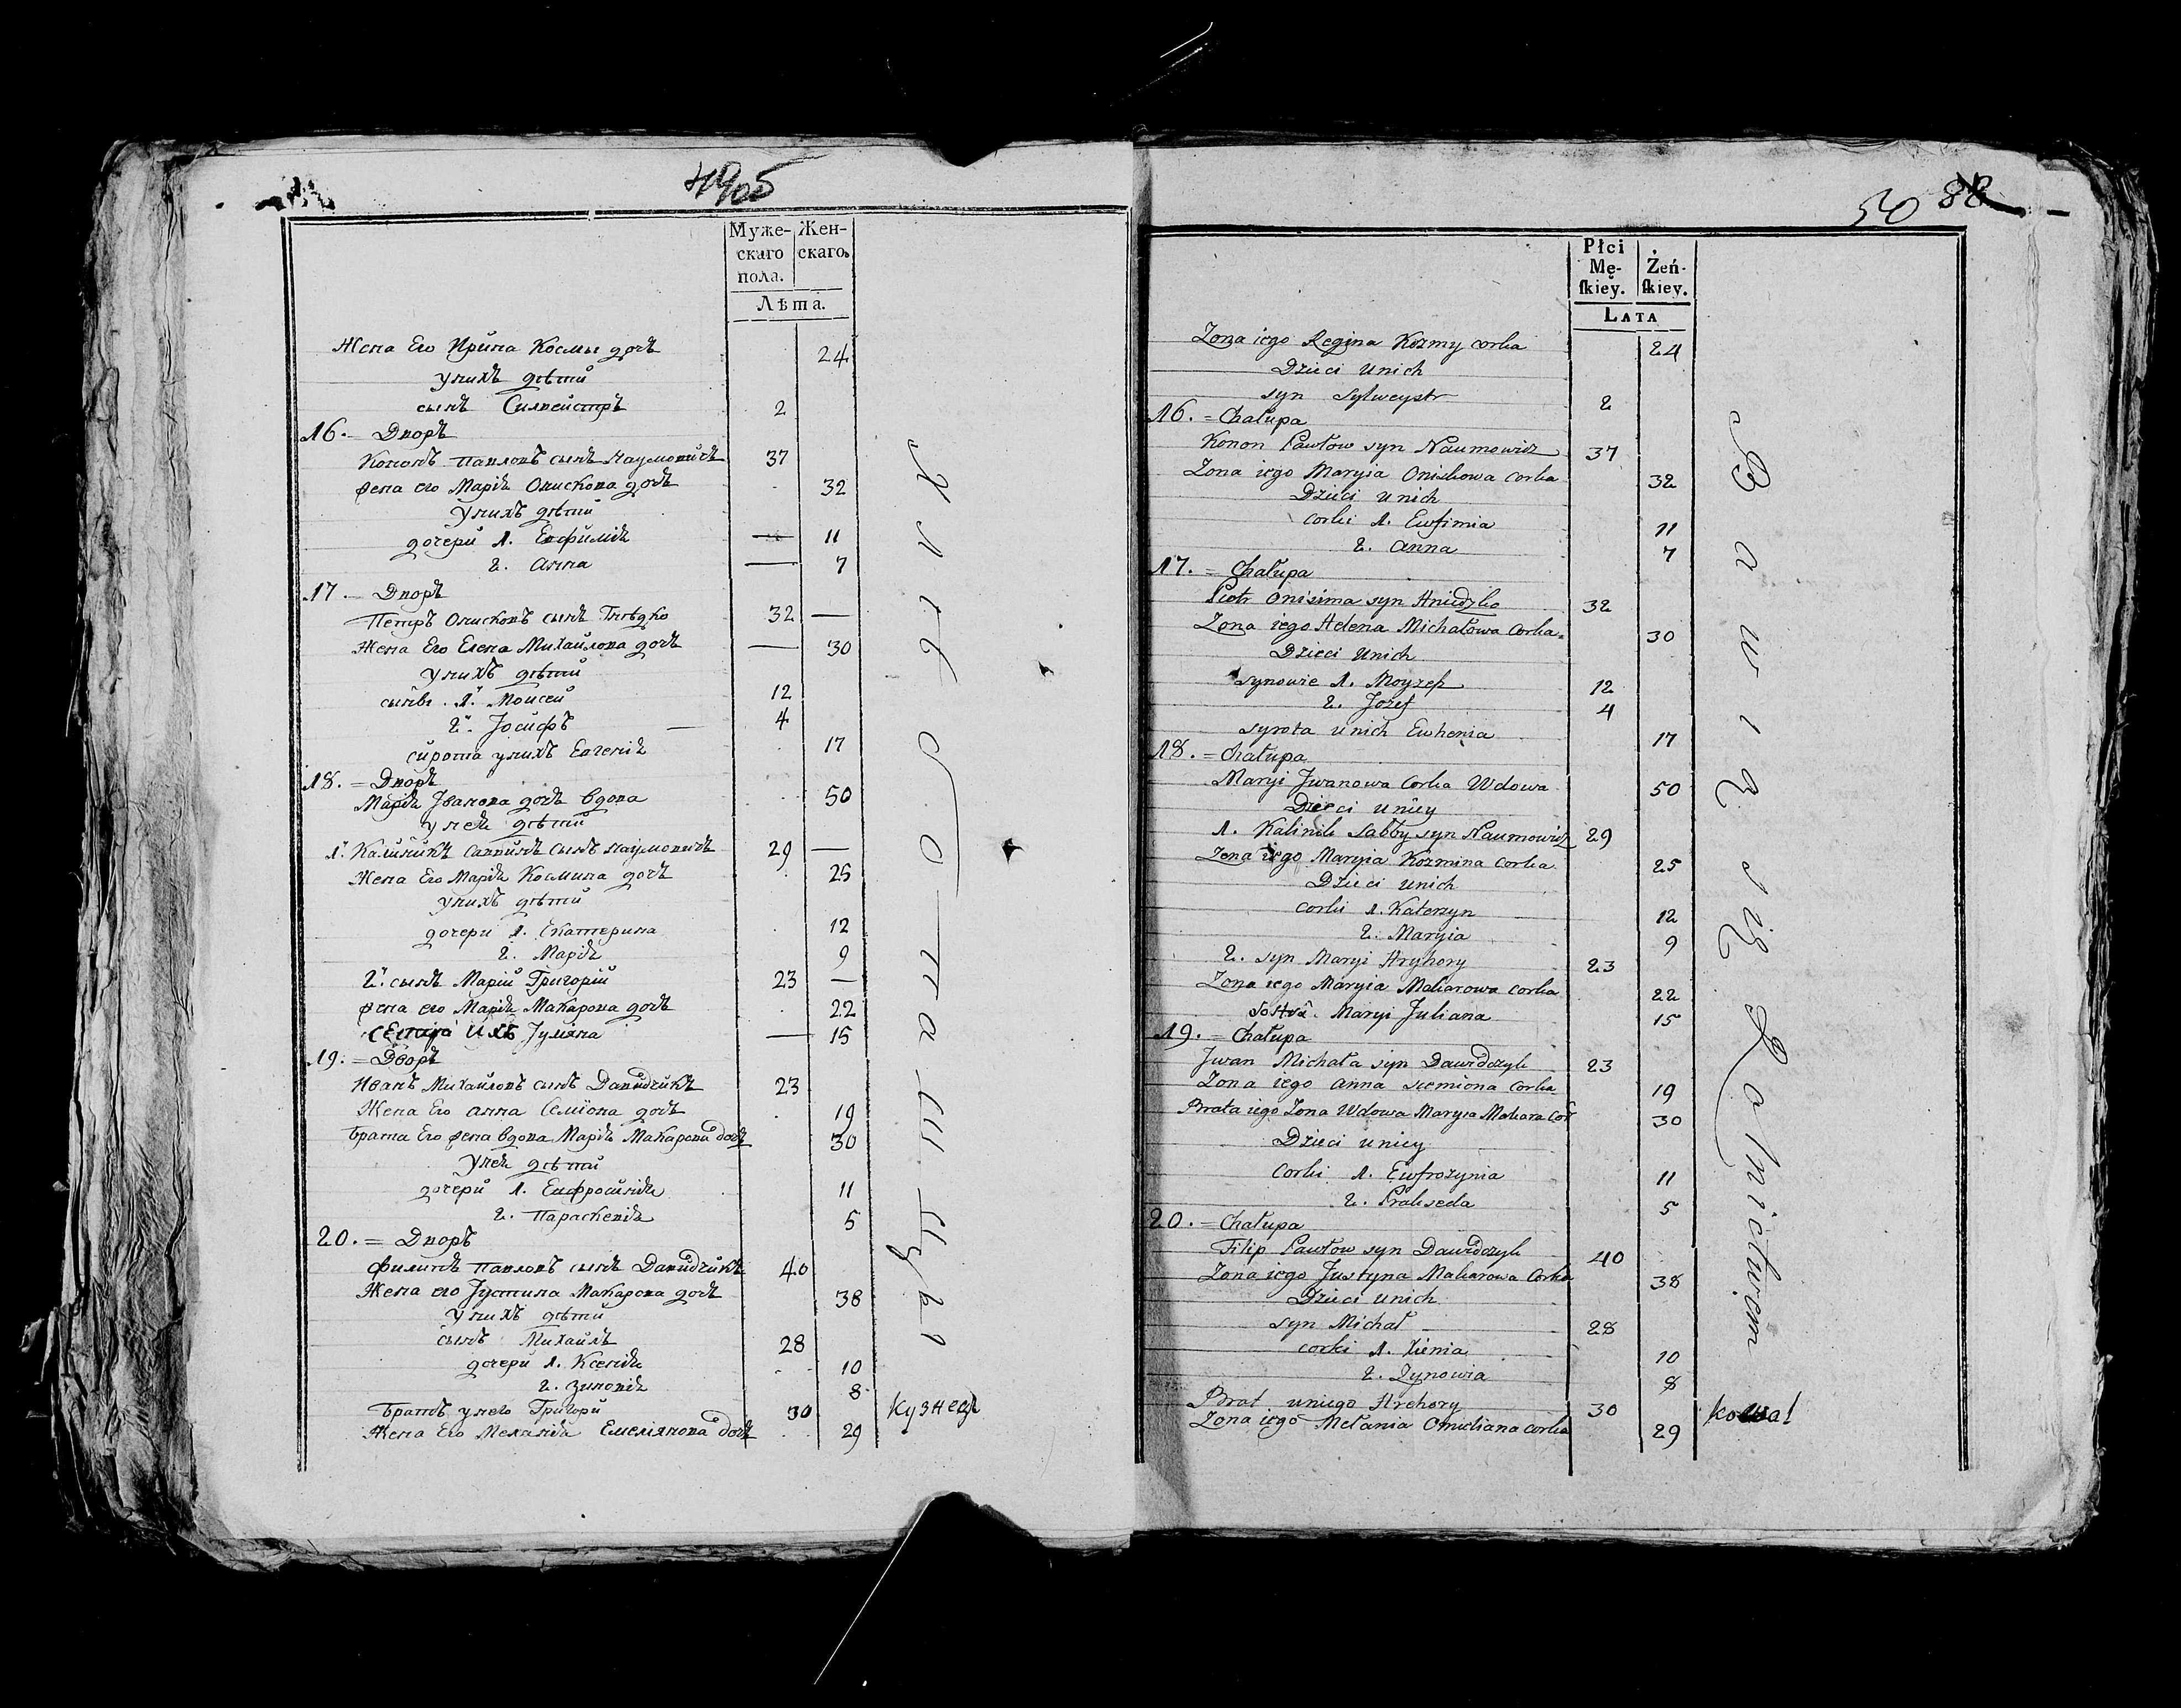 Муже-
скаго
пола.
Жен-
скаго.
Лѣта.
Жена Его Ирина Космы дочь 24
у нихъ дѣти
сынъ Силвейстръ 2
16. Дворъ
Кононъ Павловъ сынъ Наумовичъ 37
жена его Марія Онискова дочь 32
У нихъ дѣти
дочери 1. Евфимія — 11
2. Анна — 7
17. Дворъ
Петръ Онисковъ сынъ Гнѣдко 32 —
Жена Его Елена Михайлова дочь — 30
у нихъ дѣти
сынвѣ. 1. Моисей 12
2. Іосифъ — 4
сирота у нихъ Евгенія 17
18. = Дворъ
Марія Іванова дочь вдова 50
у нея дѣти
1. Калиникъ Саввинъ сынъ Наумовичъ 29 —
Жена Его Марія Космина дочь 25
у нихъ дѣти
дочери 1. Екатерина 12
2. Марія 9
2. сынъ Маріи Григорій 23 —
жена его Марія Макарова дочь 22
ихъ Іуліяна — 15
19. = Дворъ
Иванъ Михайловъ сынъ Давидчикъ 23
Жена Его Анна Семіона дочь 19
Брата Его жена вдова Марія Макарова дочь 30
У нея дѣти
дочери 1. Евфросинія 11
2. Параскевія 5
20. = Дворъ
Филипъ Павловъ сынъ Давидчикъ 40
Жена его Іустина Макарова дочь 38
У нихъ дѣти
сынъ Михаилъ 28
дочери 1. Ксенія 10
2. Зиновія 8
Братъ у него Григори 30 кузнецъ
Жена Его Меланія Емеліянова дочь 29
50 88
Płci
Mę-
ſkiey.
Żeń-
ſkiey.
LATA
Zona iego Regina Kozmy corka 24
Dzieci unich
syn Sylweystr 2
16. = Chałupa
Konon Pawłow syn Naumowicz 37
Zona iego Maryia Oniskowa corka 32
Dzieci unich
corki 1. Ewfimia 11
2. Anna 7
17. = Chałupa
Piotr Onisima syn Hniedzko 32
Zona iego Helena Michałowa Corka 30
Dzieci unich
synowie 1. Moyzesz 12
2. Jozef 4
syrota unich Euhenia 17
18. = Chałupa
Maryi Jwanowa Corka Wdowa 50
Dzieci uniey
1. Kalinik Sabby syn Naumowicz 29
Zona iego Maryia Kozmina Corka 25
Dzieci unich
corki 1. Katerzyn 12
2. Maryia 9
2. syn Maryi Hryhory 23
Zona iego Maryia Makarowa corka 22
Sostra Maryi Juliana 15
19. = Chałupa
Jwan Michała syn Dawidczyk 23
Zona iego Anna Siemiona Corka 19
Brata iego Zona Wdowa Maryia Makara Cor 30
Dzieci uniey
Corki 1. Ewfrozynia 11
2. Prakseda 5
20. = Chałupa
Filip Pawłow syn Dawidczyk 40
Zona iego Justyna Makarowa Corka 38
Dzieci unich
syn Michał 28
corki 1. Xienia 10
2. Zynowia 8
Brat uniego Hrehory 30 kowal
Zona iego Mełania Omieliana corka 29
Bawią się Rolnictwem